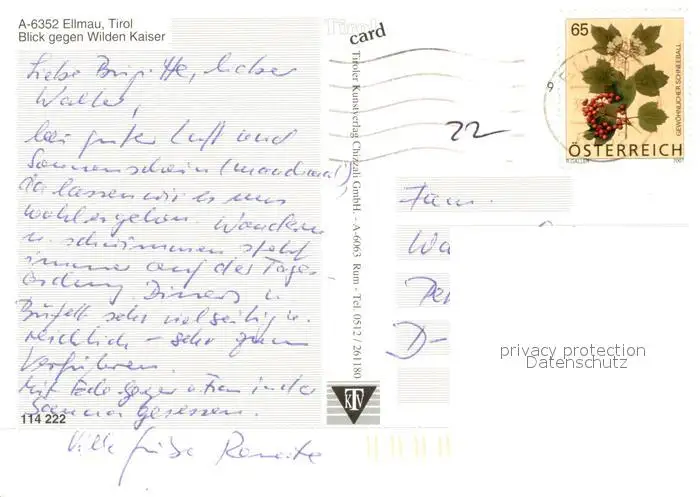 A-6352 Ellmau, Tirol
Blick gegen Wilden Kaiser
Tirol
card
Liebe Brigitte, lieber
Walter,
bei guter Luft und
Sonnenschein (manchmal)
lassen wir es uns
wohlergehen. Wandern
u. schwimmen steht
immer auf der Tages
ordnung. Diners u.
Büfett sehr vielseitig u.
reichlich – sehr zum
Verführen.
Mit Frau in der
Sauna gesessen.
114 222
Viele Grüße Renate
Tiroler Kunstverlag Chizzali GmbH. - A-6063 Rum - Tel. 0512 / 261180
KTV
22
65
GEWÖHNLICHER SCHNEEBALL
ÖSTERREICH
2007
Fam.
Wa
D-
privacy protection
Datenschutz